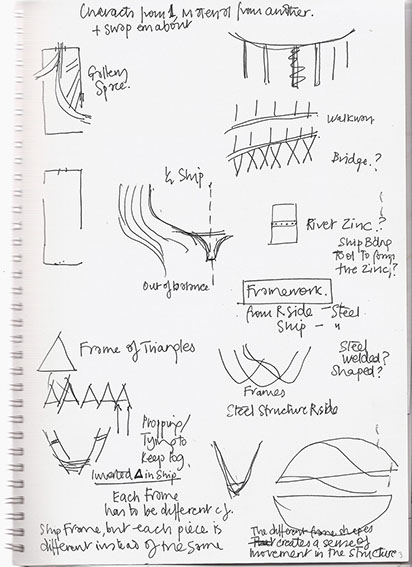 Characts from 1, Material from another.
+ swap em about
Gallery
Space.
Walkway
Bridge.?
½ Ship
River Zinc.?
Ship Bdng
Tool To form
the Zinc,?
out of balance
Framework.
from Rside - Steel
Ship - "
Steel
welded?
Shaped?
Frame of Triangles
Frames
Steel Structure Rside
Propping/
Tying to
Keep tog.
Inverted Δ in Ship
Each Frame
has to be different c.f.
Ship Frame, but each piece is
different instead of the same
The different frame shapes
creates a sense of
movement in the structure
3